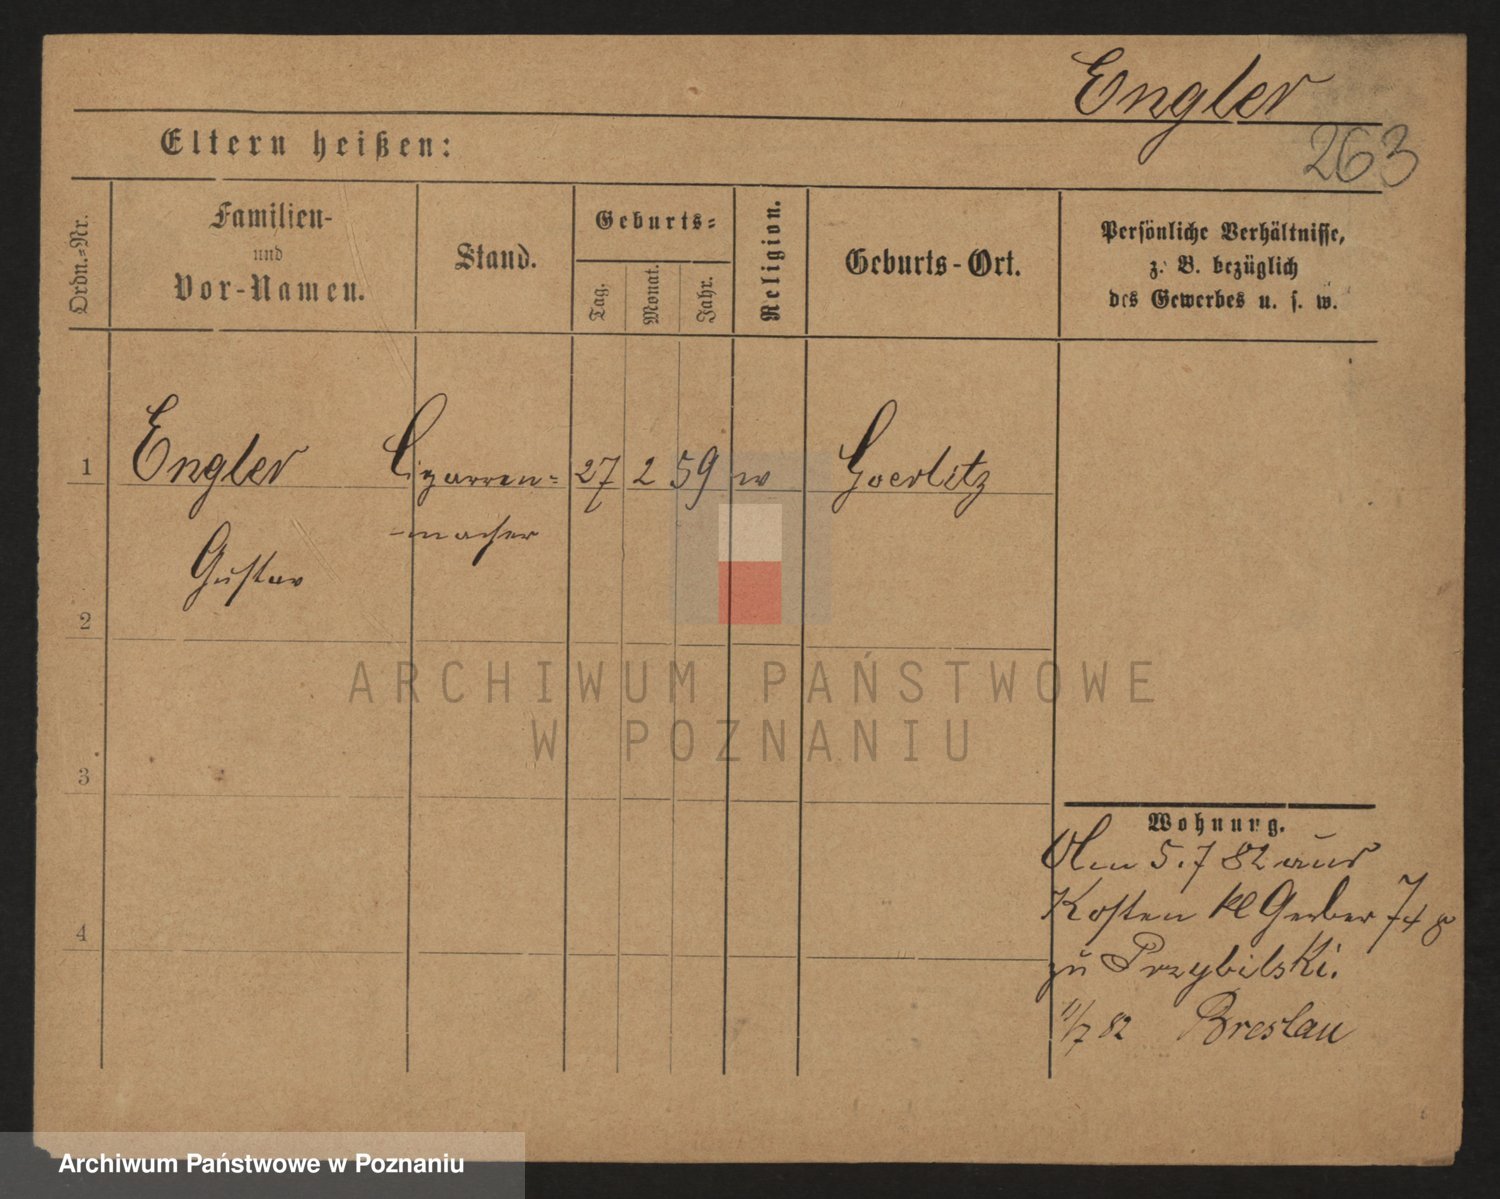 Engler
263
Eltern heißen:
Ordn.-Nr.
Familien-
und
Vor-Namen.
Stand.
Geburts-
Tag.
Monat.
Jahr.
Religion.
Geburts-Ort.
Persönliche Verhältnisse,
z. B. bezüglich
des Gewerbes u. s. w.
1 Engler Cigarren- 27 2 59 Goerlitz
-macher
Gustav
2
3
4
Wohnung.
Am 5.7 82 aus
Kosten kl Gerber
zu Przybilski.
11/7 82 Breslau
ARCHIWUM PAŃSTWOWE
W POZNANIU
Archiwum Państwowe w Poznaniu